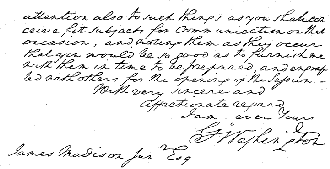 attention also to such things as you shall con
ceive fit subjects for Communication on that
occasion, and, noting them as they occur
that you would be so good as to furnish me
with them in time to be prepared, and engraf
ted with others for the opening of the Session.
With very sincere and
Affectionate regard
I am ever Yours
G. Washington
James Madison Junr Esq